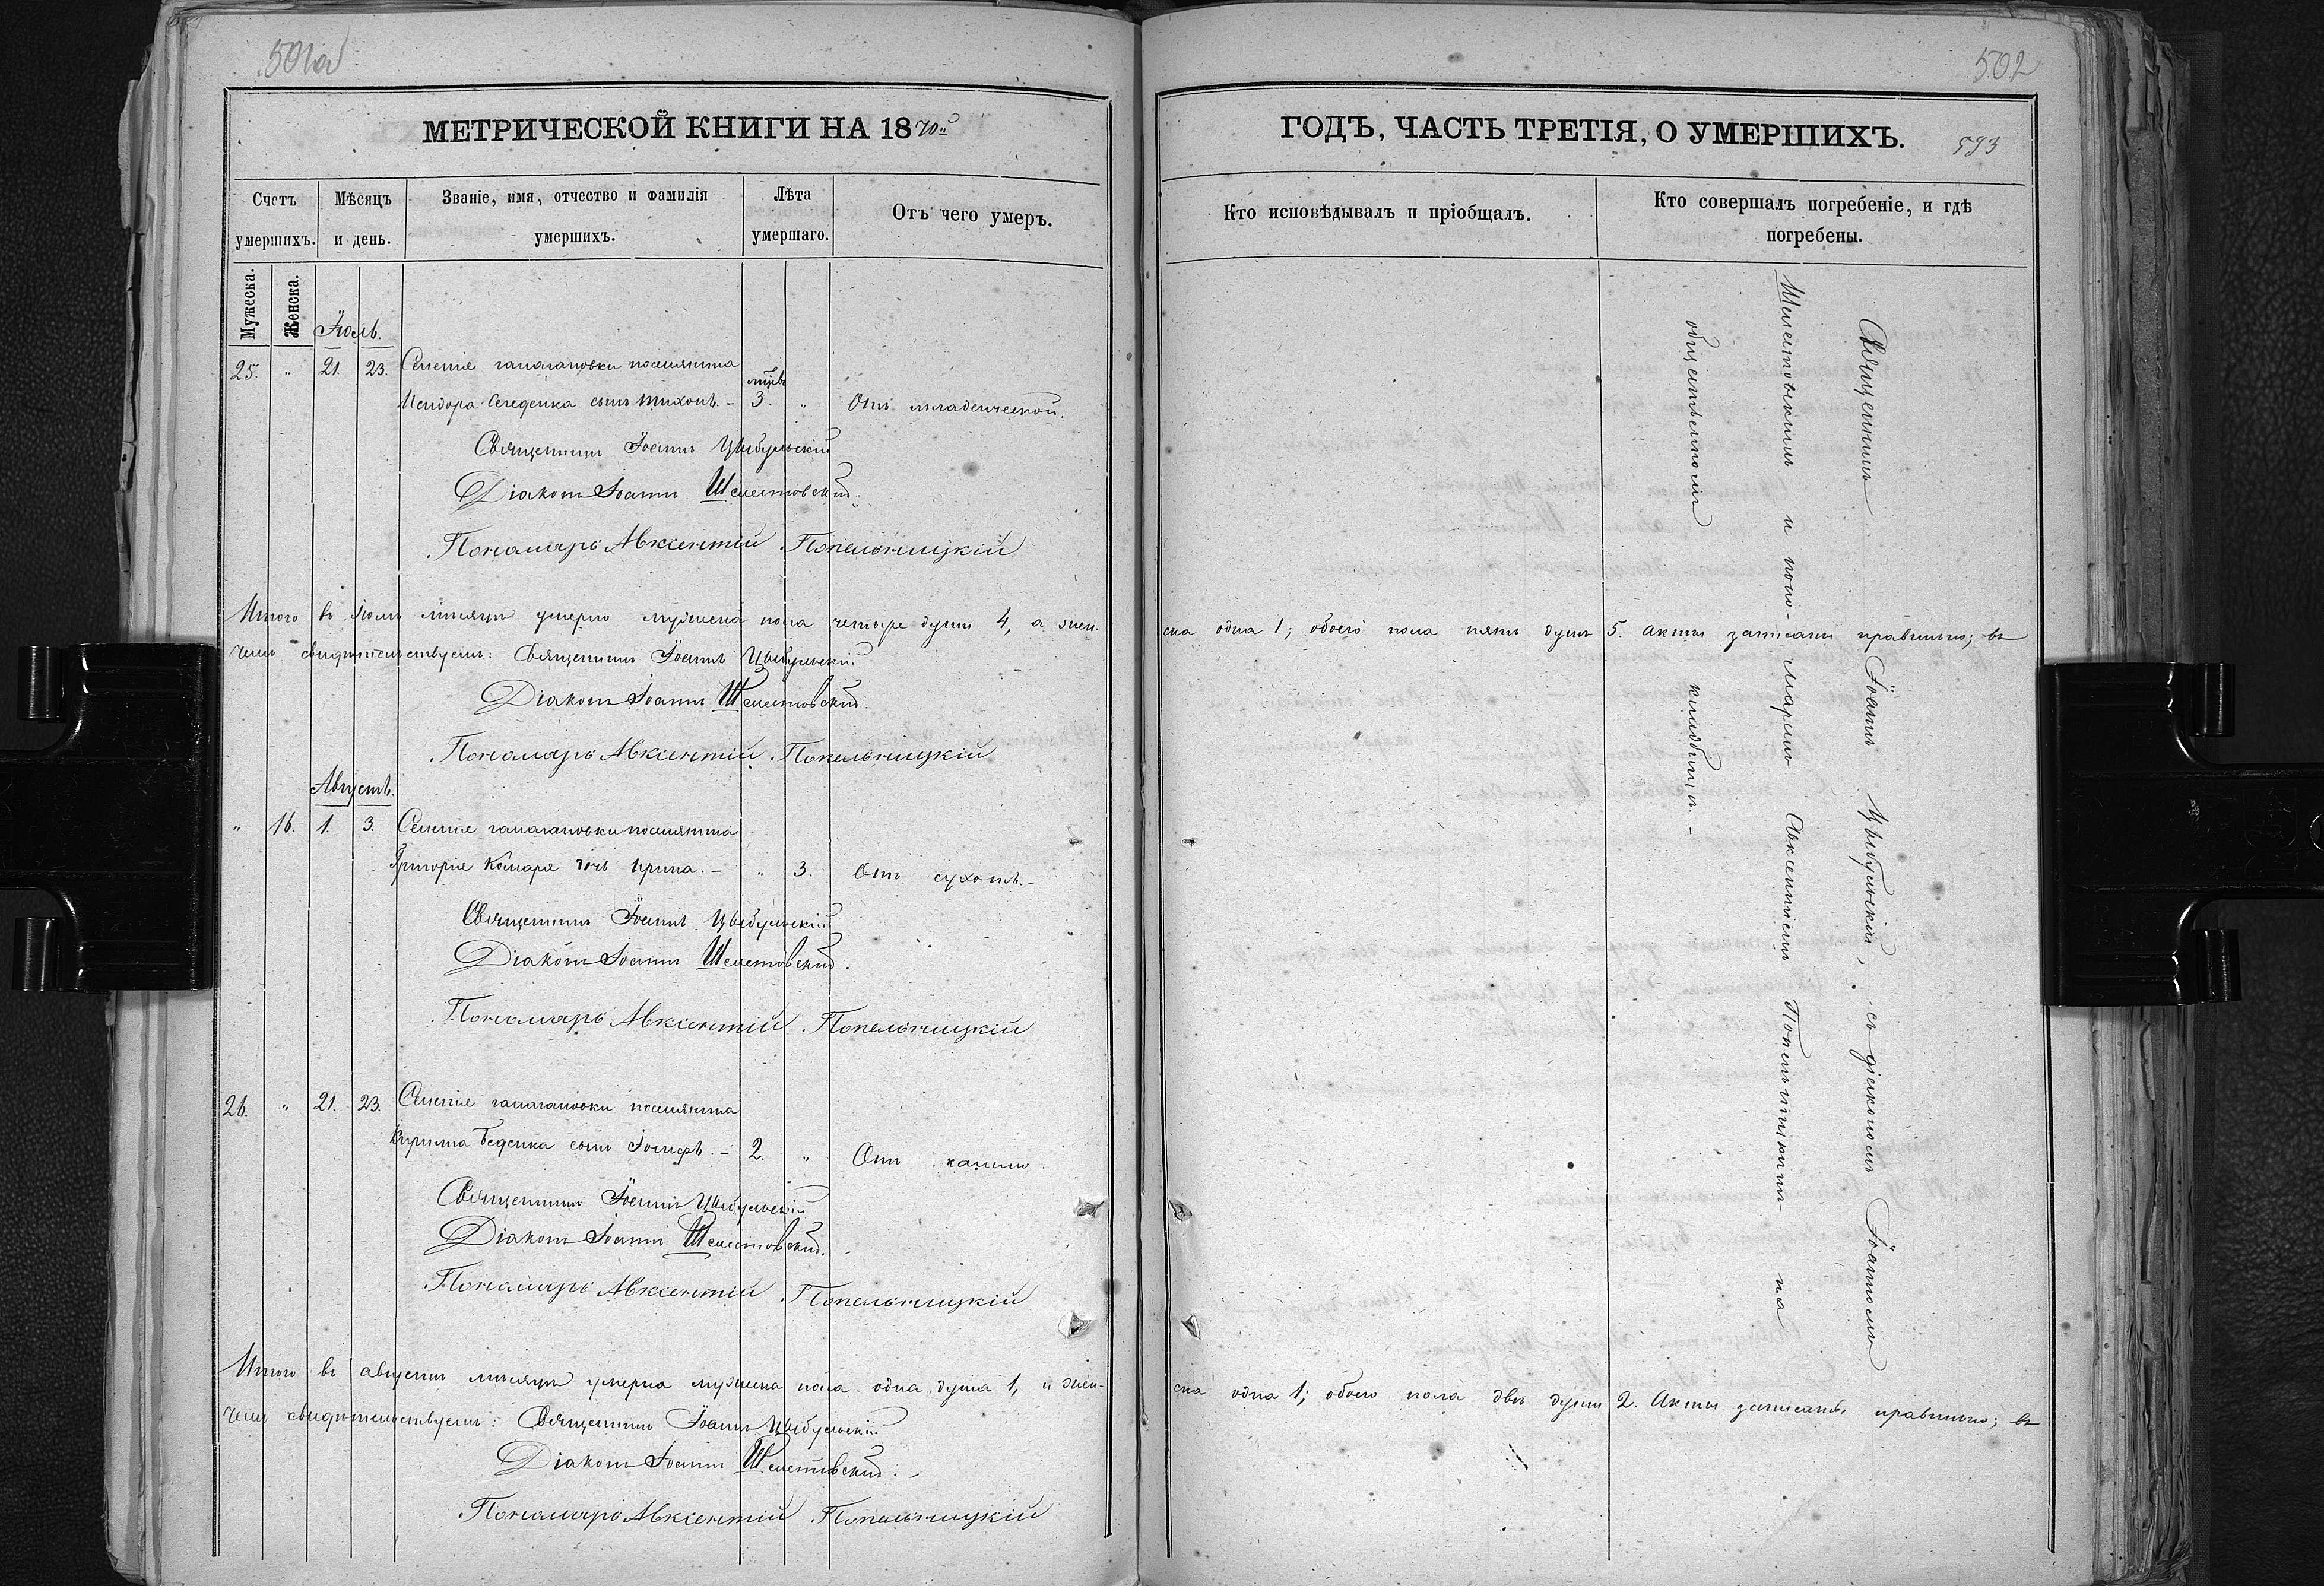 501об
502
МЕТРИЧЕСКОЙ КНИГИ НА 1870й
ГОДЪ, ЧАСТЬ ТРЕТІЯ, О УМЕРШИХЪ.
593
Счетъ умершихъ.
Мѣсяцъ и день.
Званіе, имя, отчество и фамилія умершихъ.
Лѣта умершаго.
Отъ чего умеръ.
Кто исповѣдывалъ и пріобщалъ.
Кто совершалъ погребеніе, и гдѣ погребены.
Мужеска.
Женска.
Іюль.
25. " 21. 23. Селенія галагановки поселянина
Исидора сынъ Тихонъ. – 3. " Отъ младенческой.
Священникъ Іоаннъ Цыбульскій
Діаконъ Іоаннъ Шелестовскій.
Пономарь Авксентій Попельницкій
Итого въ Іюлѣ мѣсяцѣ умерло мужеска пола четыре души 4, а жен-
ска одна 1; обоего пола пять душъ 5. Акты записаны правильно; въ
чемъ свидѣтельствуемъ: Священникъ Іоаннъ Цыбульскій
Діаконъ Іоаннъ Шелестовскій.
Пономарь Авксентій Попельницкій
Августъ.
" 16. 1. 3. Селенія галагановки поселянина
Григорія Комаря дочь Ирина. – " 3. Отъ сухотъ. –
Священникъ Іоаннъ Цыбульскій
Діаконъ Іоаннъ Шелестовскій.
Пономарь Авксентій Попельницкій
26. " 21. 23. Селенія галагановки поселянина
Кирилла сынъ Іосифъ. – 2. " Отъ кашлю.
Священникъ Іоаннъ Цыбульскій
Діаконъ Іоаннъ Шелестовскій.
Пономарь Авксентій Попельницкій
Итого въ августѣ мѣсяцѣ умерла мужеска пола одна душа 1, и жен-
ска одна 1; обоего пола двѣ души 2. Акты записаны правильно; въ
чемъ свидѣтельствуемъ: Священникъ Іоаннъ Цыбульскій
Діаконъ Іоаннъ Шелестовскій. –
Пономарь Авксентій Попельницкій
Священникъ Іоаннъ Цыбульскій, съ діакономъ Іоанномъ
Шелестовскимъ и пономаремъ Авксентіемъ Попельницкимъ на
общественномъ кладбищѣ. –